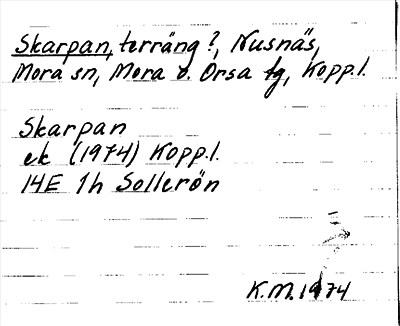 Skarpan, terräng?, Nusnäs,
Mora sn, Mora o. Orsa tg, Kopp.l.
Skarpan
ek (1974) Kopp.l.
14E 1h Sollerön
K.M. 1974